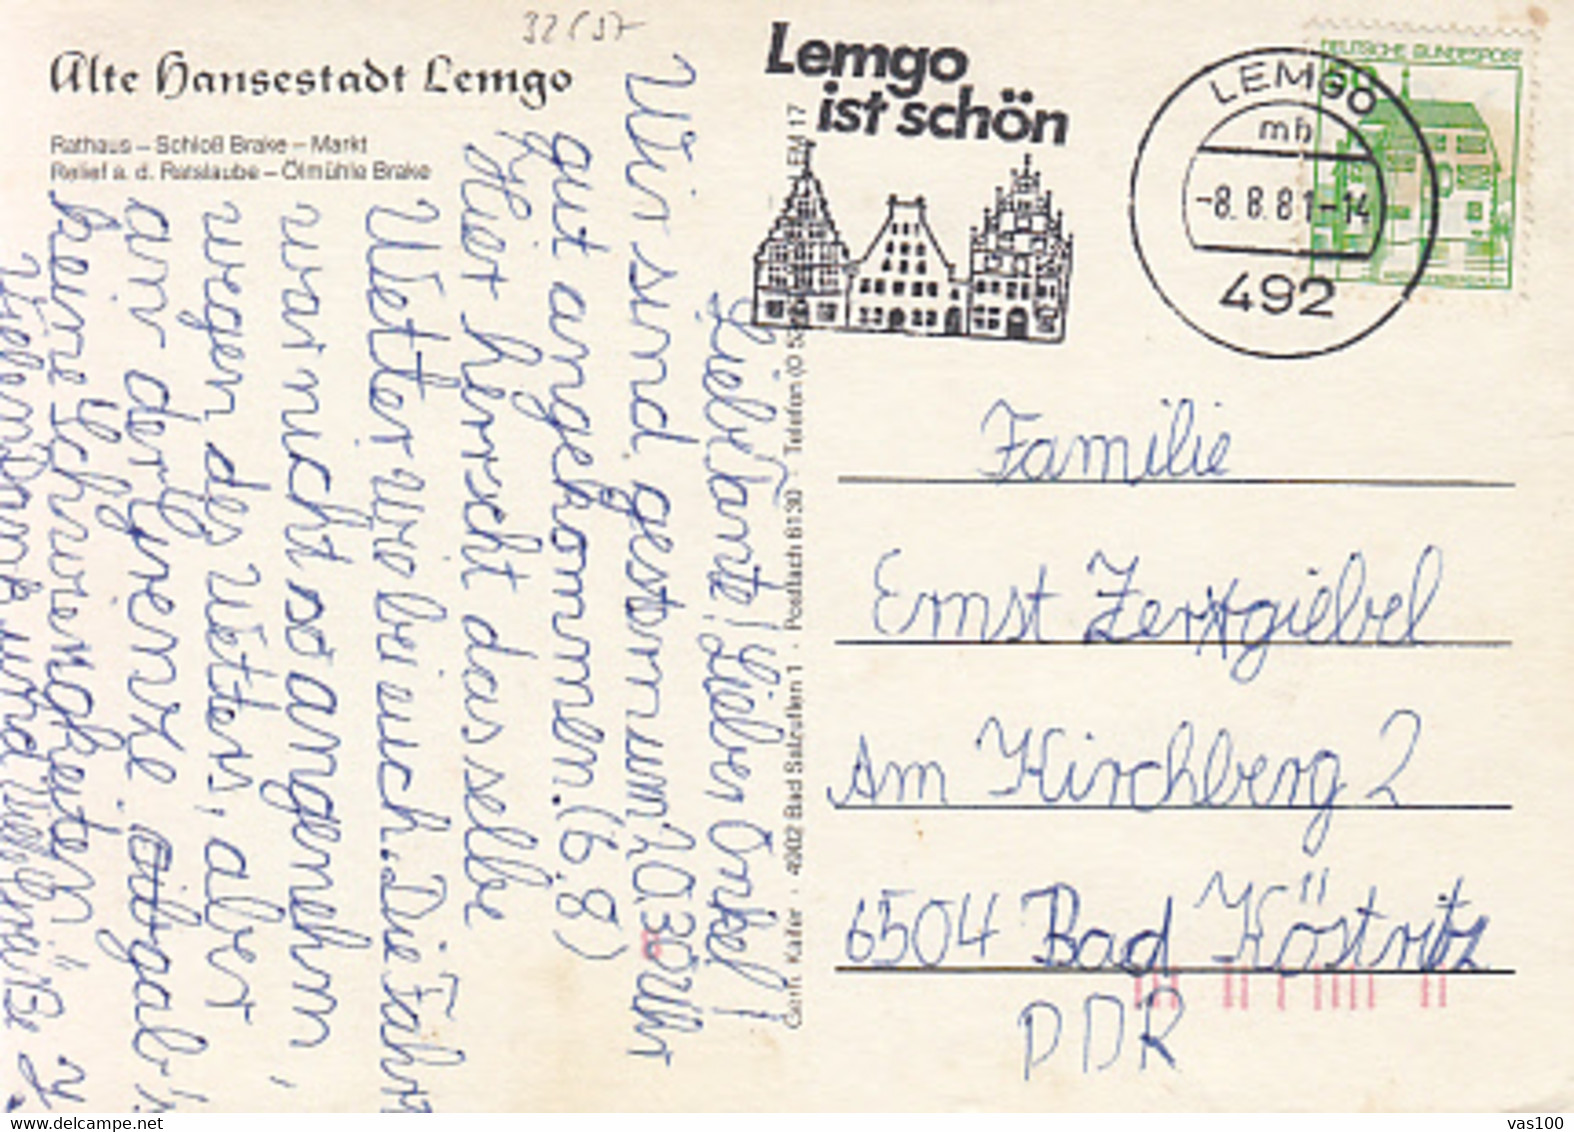 32/37
Alte Hansestadt Lemgo
Rathaus – Schloß Brake – Markt
Relief a. d. Ratslaube – Ölmühle Brake
Lemgo
ist schön
LEMGO
mb
-8. 8. 81-14
492
DEUTSCHE BUNDESPOST
Liebe Tante! Lieber Onkel!
Wir sind gestern um 20.30 Uhr
gut angekommen. (6.8)
Hier herscht das selbe
Wetter wie bei euch. Die Fahrt
war nicht so angenehm,
wegen des Wetters, aber
an der Grenze gab's
keine Schwirigkeiten.
Vielen Dank und viele Grüße
Gebr. Käfer · 4902 Bad Salzuflen 1 · Postfach 6130 · Telefon (0 52
LEM 17
Familie
Ernst Zerxgiebel
Am Kirchberg 2
6504 Bad Köstritz
DDR
vas100